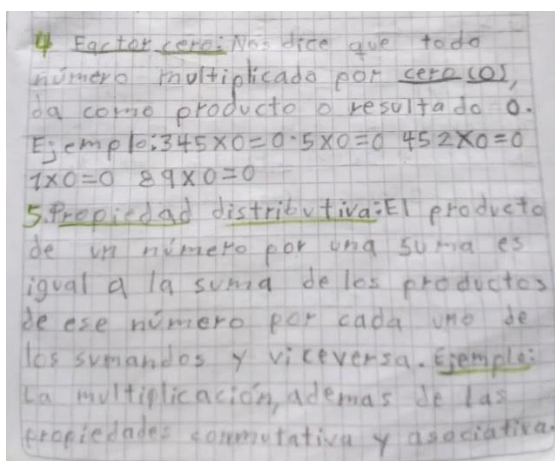 4 Factor cero: Nos dice que todo
número multiplicado por cero (0),
da como producto o resultado 0.
Ejemplo: 345x0=0 · 5x0=0 452x0=0
1x0=0 89x0=0
5. Propiedad distributiva: El producto
de un número por una suma es
igual a la suma de los productos
de ese número por cada uno de
los sumandos y viceversa. Ejemplo:
La multiplicación, ademas de las
propiedades conmutativa y asociativa.